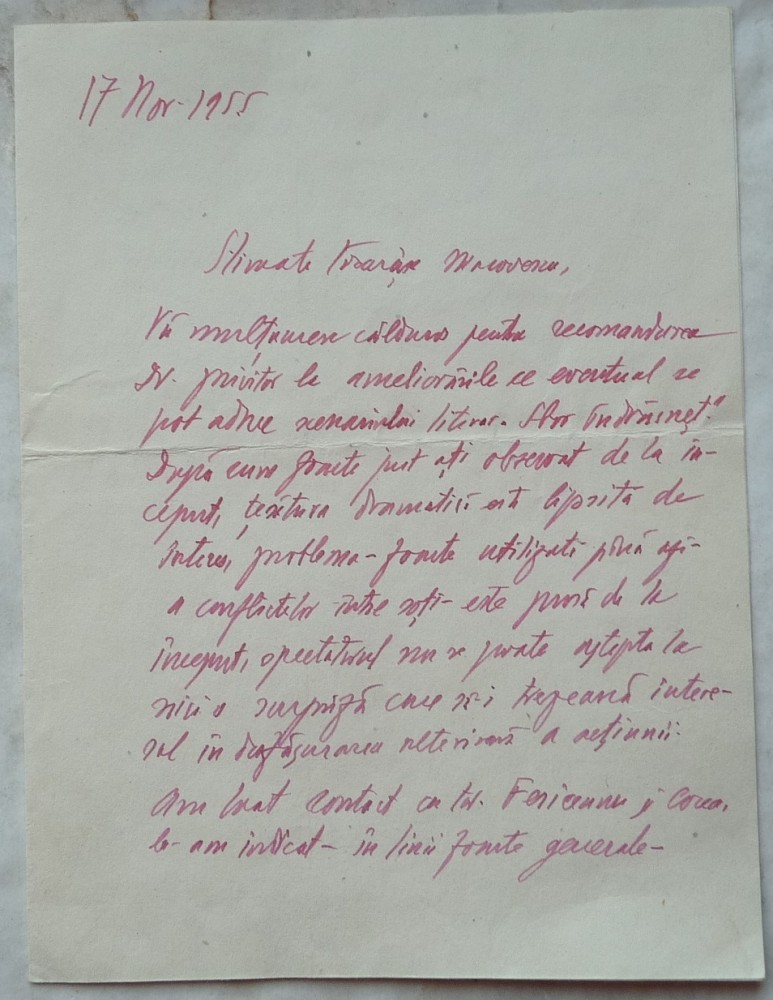 17 Nov-1955
Stimate Tovarășe Macovescu,
Vă mulțumesc călduros pentru recomandarea
Dv. privitor la ameliorările ce eventual se
pot aduce scenariului literar "Sbor îndrăsneț."
După cum foarte just ați observat de la în-
ceput, țesătura dramatică este lipsită de
interes, problema - foarte utilizată până aci -
a conflictelor între soți - este pusă de la
început, spectatorul nu se poate aștepta la
nici o surpriză care să-i trezească intere-
sul în desfășurarea ulterioară a acțiunii.
Am luat contact cu tov. Fericeanu și Cocea,
le-am indicat - în linii foarte generale -